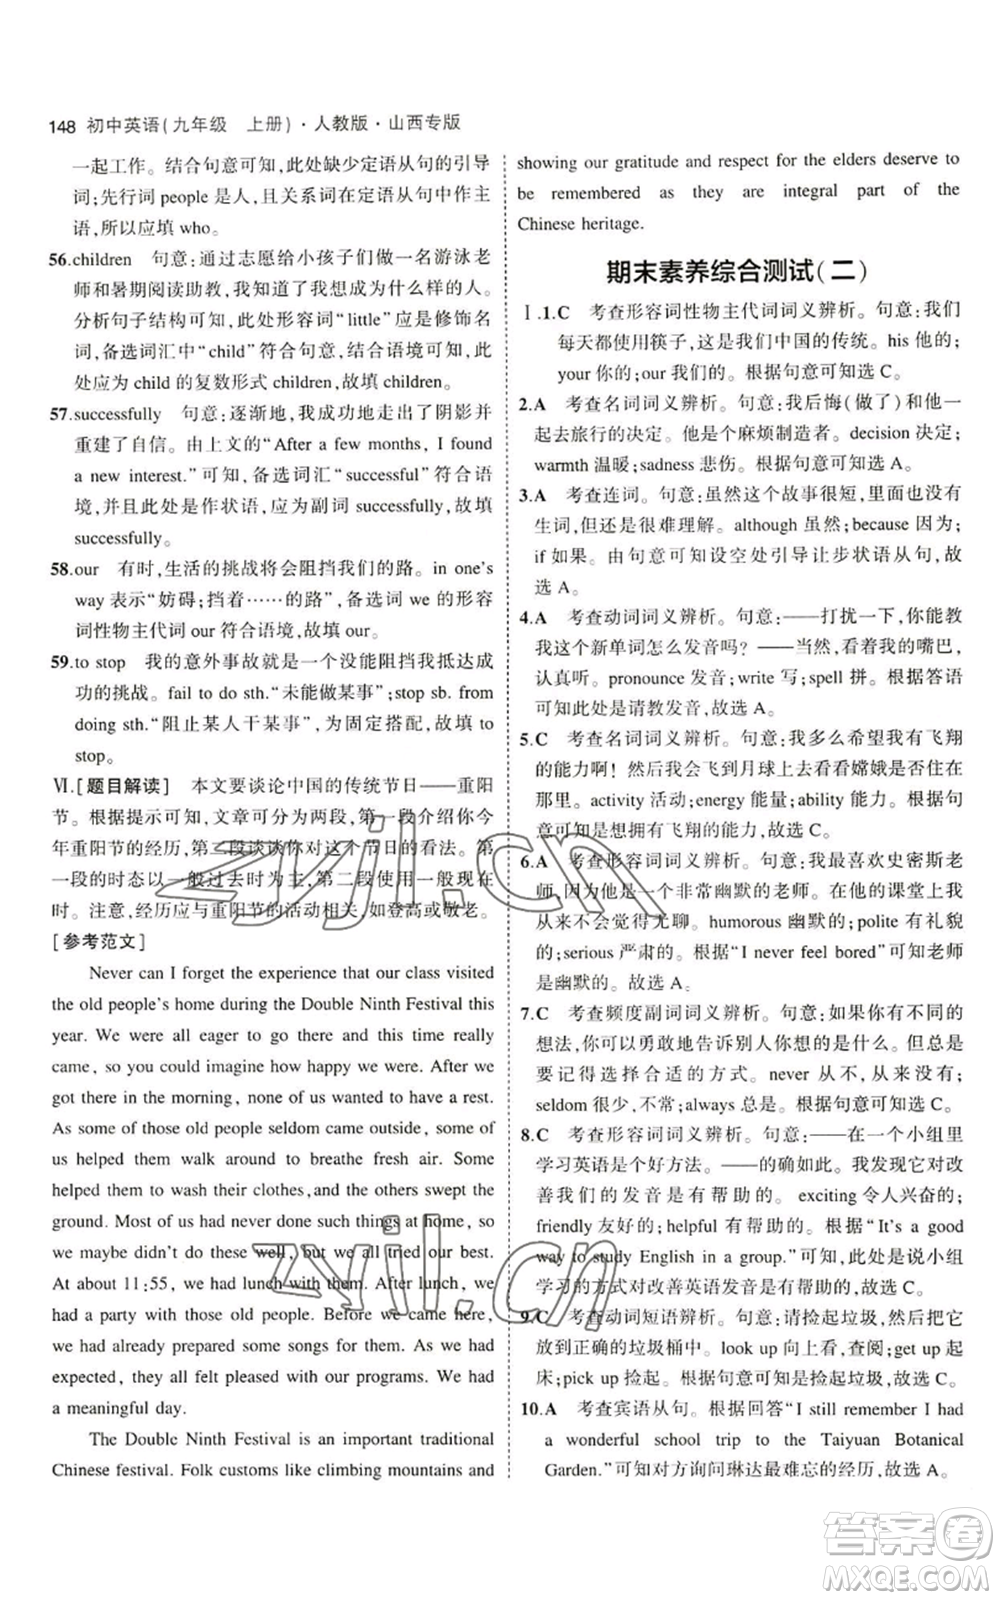 148 初中英语(九年级　上册)·人教版·山西专版
一起工作。结合句意可知,此处缺少定语从句的引导
词;先行词 people 是人,且关系词在定语从句中作主
语,所以应填 who。
56.children　句意:通过志愿给小孩子们做一名游泳老
师和暑期阅读助教,我想起了我为什么这样的人。
分析句子结构可知,此处形容词“little”应是修饰名
词,备选词汇中“child”符合句意,结合语境可知,此
处应为 child 的复数形式 children,故填 children。
57.successfully　句意:逐渐地,我成功地走出了阴影并
重建了自信。由上文的“After a few months, I found
a new interest.”可知,备选词汇“successful”符合语
境,并且此处是作状语,应为副词 successfully,故填
successfully。
58.our　有时,生活的挑战将会阻挡我们的路。in one's
way 表示“妨碍;挡着……的路”,备选词 we 的形容
词性物主代词 our 符合语境,故填 our。
59.to stop　我的意外事故就是一个没能阻挡我抵达成
功的挑战。fail to do sth.“未能做某事”;stop sb. from
doing sth.“阻止某人干某事”,为固定搭配,故填 to
stop。
Ⅵ.[题目解读]　本文要谈论中国的传统节日——重阳
节。根据提示可知,文章可分为两段,第一段介绍你今
年重阳节的经历,第二段谈谈你对这个节日的看法。第
一段的时态以一般过去时为主,第二段使用一般现在
时。注意,经历应与重阳节的活动相关,如登高或敬老。
[参考范文]
Never can I forget the experience that our class visited
the old people's home during the Double Ninth Festival this
year. We were all eager to go there and this time really
came, so you could imagine how happy we were. After we
got there in the morning, none of us wanted to have a rest.
As some of those old people seldom came outside, some of
us helped them walk around to breathe fresh air. Some
helped them to wash their clothes, and the others swept the
ground. Most of us had never done such things at home, so
we maybe didn't do these well, but we all tried our best.
At about 11:55, we had lunch with them. After lunch, we
had a party with those old people. Before we came here,
we had already prepared some songs for them. As we had
expected, they all felt pleased with our programs. We had
a meaningful day.
The Double Ninth Festival is an important traditional
Chinese festival. Folk customs like climbing mountains and
showing our gratitude and respect for the elders deserve to
be remembered as they are integral part of the
Chinese heritage.
期末素养综合测试(二)
Ⅰ.1.C　考查形容词性物主代词词义辨析。句意:我们
每天都使用筷子,这是我们中国的传统。his 他的;
your 你的;our 我们的。根据句意可知选 C。
2.A　考查名词词义辨析。句意:我后悔(做了)和他一
起去旅行的决定。他是个麻烦制造者。decision 决定;
warmth 温暖;sadness 悲伤。根据句意可知选 A。
3.A　考查连词。句意:虽然这个故事很短,里面也没有
生词,但还是很难理解。although 虽然;because 因为;
if 如果。由句意可知设空处引导让步状语从句,故
选 A。
4.A　考查动词词义辨析。句意:——打扰一下,你能教
我这个新单词怎么发音吗?——当然,看着我的嘴巴,
认真听。pronounce 发音;write 写;spell 拼。根据答语
可知此处是请教发音,故选 A。
5.C　考查名词词义辨析。句意:我多么希望我有飞翔
的能力啊!我会飞到月球上去看看嫦娥是否住在
那里。activity 活动;energy 能量;ability 能力。根据句
意可知想要拥有飞翔的能力,故选 C。
6.A　考查形容词词义辨析。句意:我最喜欢史密斯老
师。他是一个非常幽默的老师。在他的课堂上我
从来不会觉得无聊。humorous 幽默的;polite 有礼貌
的;serious 严肃的。根据“I never feel bored”可知老师
是幽默的。故选 A。
7.C　考查频度副词词义辨析。句意:如果你有不同的
想法,你可以勇敢地告诉别人你想的是什么。但是总要
记得选择合适的方式。never 从不,从来没有;
seldom 很少,不常;always 总是。根据句意可知选 C。
8.C　考查形容词词义辨析。句意:——在一个小组里
学习英语是个好方法。——的确如此。我发现它对改
善我们的发音是有帮助的。exciting 令人兴奋的;
friendly 友好的;helpful 有帮助的。根据“It's a good
way to study English in a group.”可知,此处是说小组
学习的方式对改善英语发音是有帮助的,故选 C。
9.C　考查动词短语辨析。句意:请捡起垃圾,并把它
放到正确的垃圾桶中。look up 向上看,查阅;get up 起
床;pick up 捡起。根据句意可知是捡起垃圾,故选 C。
10.A　考查宾语从句。根据回答“I still remember I had
a wonderful school trip to the Taiyuan Botanical
Garden.”可知对方询问琳达最难忘的经历,故选 A。
zyjl.cn
zyjl.cn
答案圈
MXQE.COM